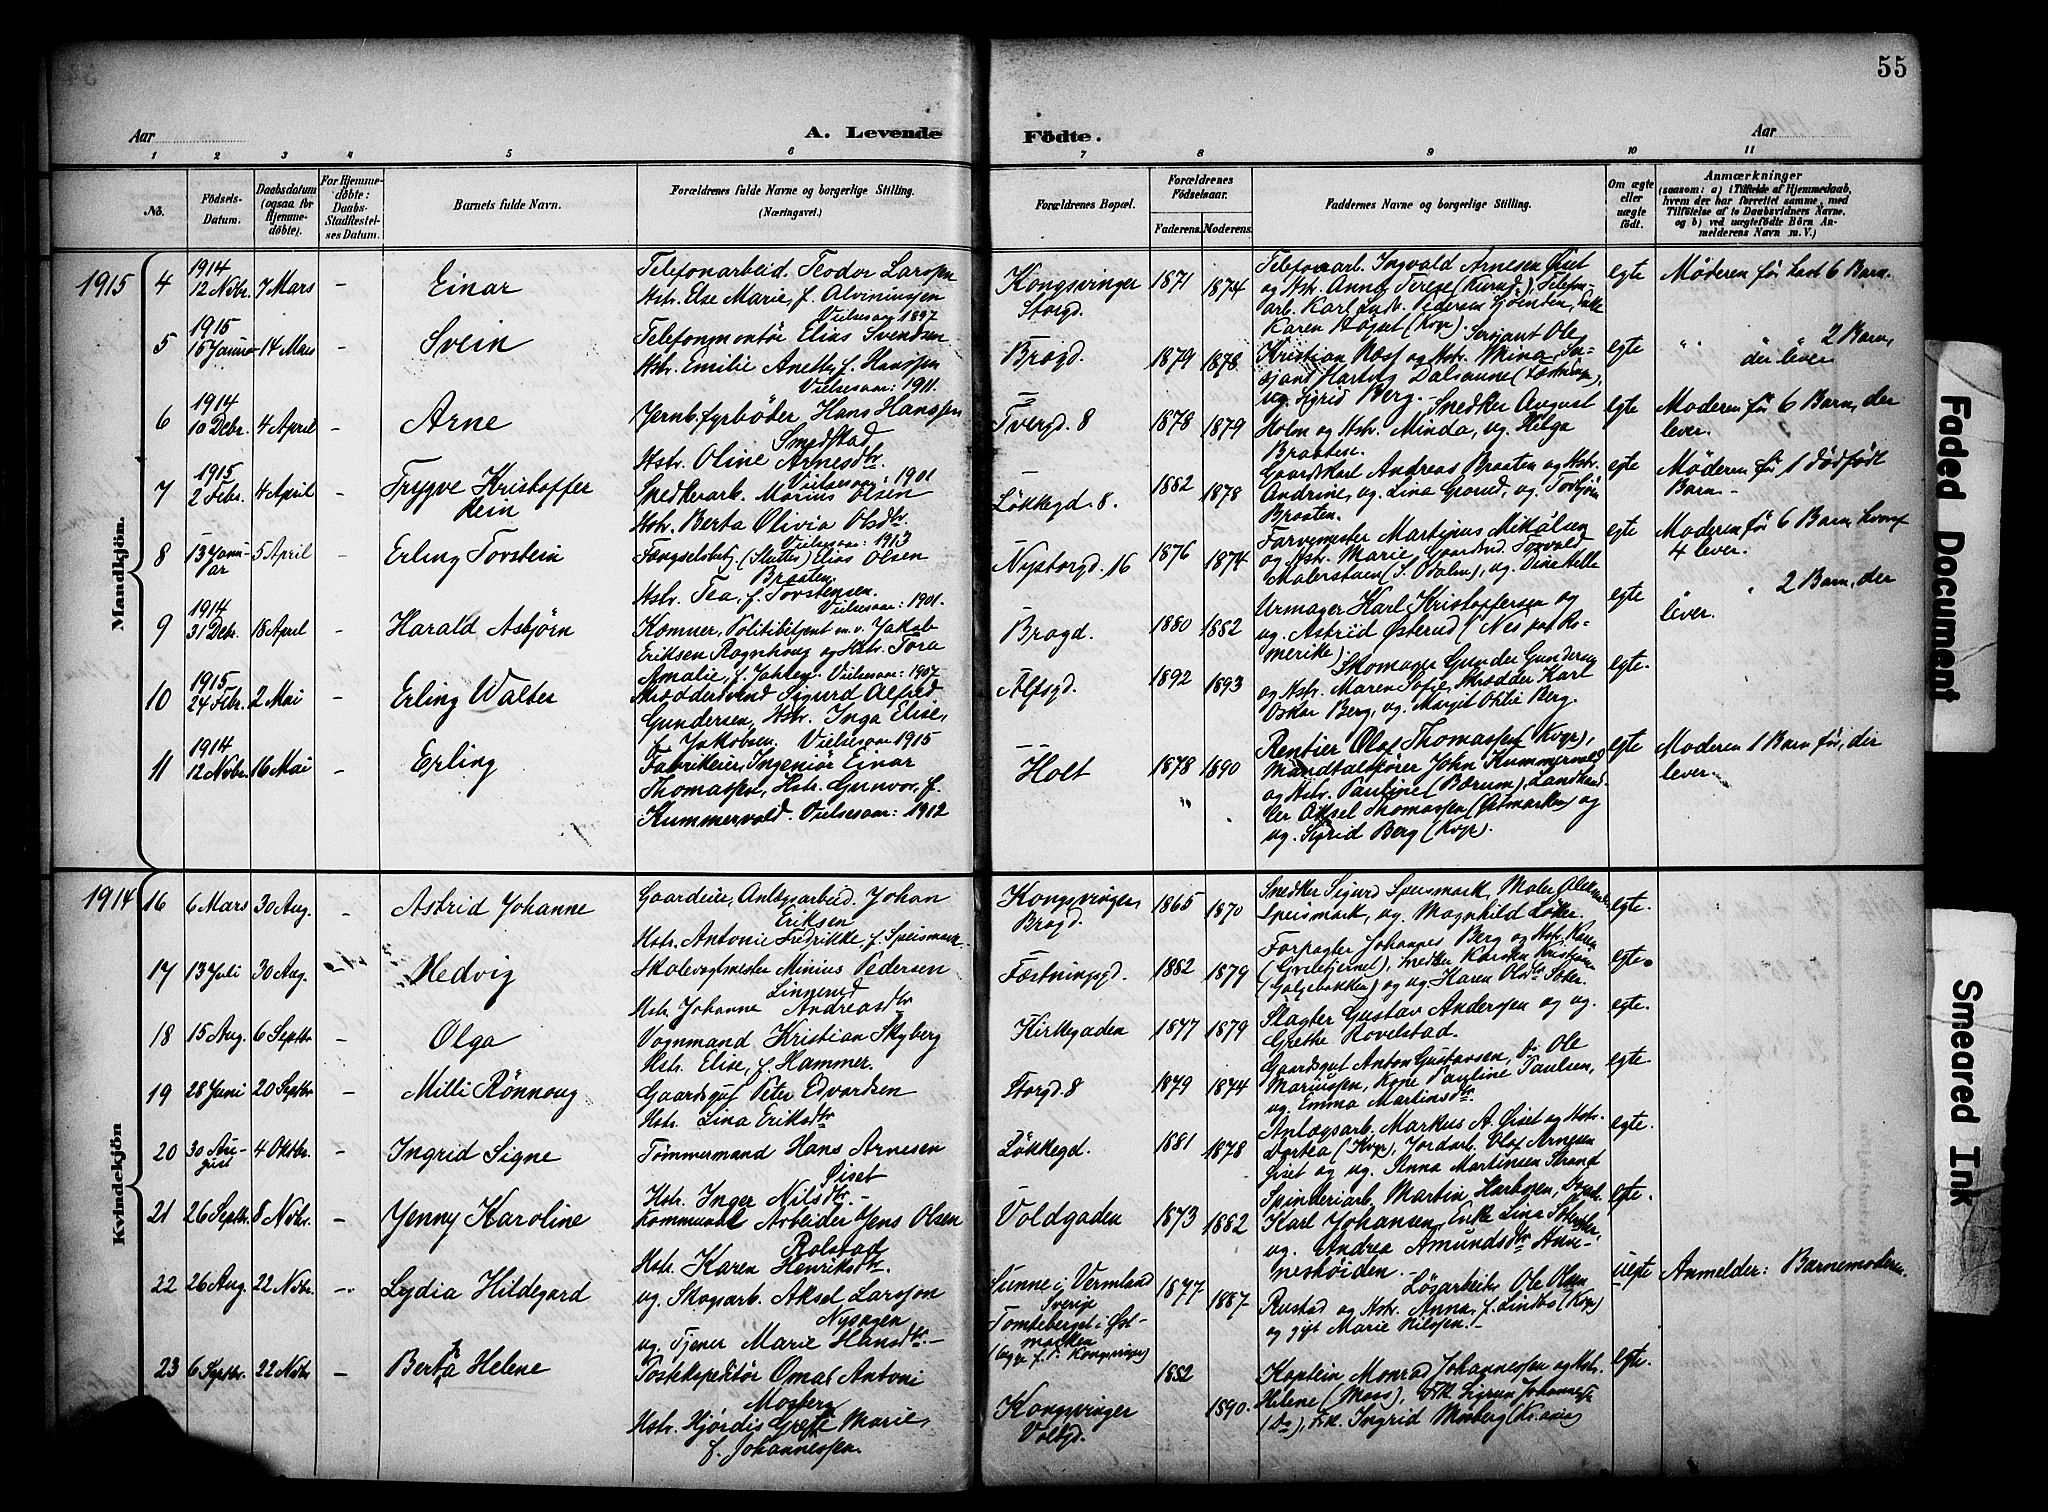 55
Aar
A. Levende
Födte.
Aar
1 2 3 4 5 6 7 8 9 10 11
No.
Födsels-
Datum.
Daabsdatum
(ogsaa for
Hjemme-
døbte).
For Hjemme-
døbte:
Daabs-
Stadfestel-
ses Datum.
Barnets fulde Navn.
Forældrenes fulde Navne og borgerlige Stilling.
(Næringsvei.)
Forældrenes Bopæl.
Forældrenes
Födselsaar.
Faderens. Moderens.
Faddernes Navne og borgerlige Stilling.
Om ægte
eller
uægte
født.
Anmærkninger
(saasom: a) i Tilfælde af Hjemmedaab,
hvem der har forrettet samme, med
Tilföielse af to Daabsvidners Navne,
og b) ved uægtefødte Börn An-
melderens Navn m. V.)
Mandkjön.
1915
4 1914 12 Novbr. 7 Mars – Einar
Telefonarbeid. Teodor Larssen
Hstr. Else Marie, f. Alvinussen
Vielsesaar 1897
Kongsvinger
Storgd.
1871 1874
Telefonarb. Ingvald Arnesen Øiset
og Hstr. Anna Terese
arb. Karl
Karen
egte
Moderen før havt 6 Barn.
5 1915 15 Januar 14 Mars – Svein
Telefonmontør Elias Svendsen
Hstr. Emilie Anette, f. Hanssen
Vielsesaar: 1911.
Brogd.
1879 1878
Sersjant Ole
Kristian Næss og Hstr.
Dalsaune
ug. Sigrid Berg.
egte
" " 2 Barn,
der lever.
6 1914 10 Debr. 4 April – Arne
Jernb. fyrbøter Hans Hanssen
Smedstad
Hstr. Oline Arnesdtr.
Vielsesaar: 1901
Tvergd. 8
1878 1879
Snedker August
Holm og Hstr. Minda, ug. Helga
Braaten.
egte
Moderen før 6 Barn, der
lever.
7 1915 2 Febr. 4 April – Trygve Kristoffer
Rein
Snedkerarb. Marius Olsen
Hstr. Berta Olivia Olsdtr.
Vielsesaar: 1913
Løkkegd. 8.
1882 1878
Gaardkarl Andreas Braaten og Hstr.
Andrine, ug. Lina Grorud, ug. Torbjørn
Braaten.
egte
Moderen før 1 dødfødt
Barn –
8 13 Janu-
ar 5 April – Erling Torstein
Fængselsbetj. (Slutter) Elias Olsen
Braaten.
Hstr. Tea, f. Torstensen.
Vielsesaar: 1901.
Nystorgd. 16
1876 1874
Farvemester Martinus Mikalsen
og Hstr. Marie, Gaardbrd. Torvald
Malerstuen (S. Odalen), ug. Dina Helle
egte
Moderen før 6 Barn hvoraf
4 lever.
9 1914 31 Debr. 18 April – Harald Asbjörn
Kemner, Politibetjent m.v. Jakob
Eriksen Rognhaug og Hstr. Tora
Amalie, f. Jahren. Vielsesaar: 1907
Brogd.
1880 1882
Urmager Karl Kristoffersen og
ug. Astrid Østerud (Nes paa Ro-
merike)
egte
" 2 Barn, der
lever.
10 1915 24 Febr. 2 Mai – Erling Walter
Skræddersvend Sigurd Alfred
Gundersen, Hstr. Inga Elise,
f. Jakobsen. Vielsesaar 1915
Alfsgd.
1892 1893
Skomager Gunder Gundersen
og Hstr. Maren Sofie, Skrædder Karl
Oskar Berg, ug. Margit Otilie Berg.
egte
11 1914 12 Novbr. 16 Mai – Erling
Fabrikeier, Ingeniør Einar
Thomassen, Hstr. Gunvor, f.
Kummervold. Vielsesaar: 1912
Holt
1878 1890
Rentier Olaf Thomassen (Kvgr),
Mandtalsfører John Kummervold
og Hstr. Pauline (Bærum), Landhand-
ler Aksel Thomassen (Østmarken) og
ug. Sigrid Berg (Kvgr).
egte
Moderen 1 Barn før, der
lever.
Kvindekjön
1914
16 6 Mars 30 Aug. – Astrid Johanne
Gaardeier, Anlægsarbeid. Johan
Eriksen
Hstr. Antonie Fredrikke, f. Speismark.
Kongsvinger,
Brogd.
1865 1870
Snedker Sigurd Speismark, Maler
Speismark, ug. Magnhild Løken
egte.
17 13 Juli 30 Aug. Hedvig
Skolevagtmester Minius Pedersen
Linnerud
Hstr. Johanne Andreasdtr
Fæstningsgd.
1882 1879
Forpagter Johannes Berg og Hstr. Karen
(Gvilebjernet), Snedker Karsten Kristians
(Galgebakken) og ug. Karen Olsdtr.
egte.
18 15 Aug. 6 Septbr – Olga
Vognmand Kristian Skyberg
Hstr. Elise, f. Hammer.
Kirkegaden
1877 1879
Slagter Gustav Anderssen og ug.
Grethe Rovelstad.
egte.
19 28 Juni 20 Septbr – Milli Rönnoug
Gaardsgut Peter Edvardsen
Hstr. Lina Eriksdtr
Storgd. 8
1879 1874
Gaardsgut Anton Gustavsen, Do Ole
Mariussen, Kone Pauline Paulsen,
ug. Emma Martinsdtr.
egte.
20 30 Au-
gust 4 Oktbr. – Ingrid Signe
Tømmermand Hans Arnesen
Øiset
Hstr. Inger Nilsdtr. –
Løkkegd.
1881 1878
Anlægsarb. Markus A. Øiset og Hstr.
Dortea (Kvgr), Jordarb. Olaf Arnesen
Øiset og ug. Anna Martinsen Strand
egte.
21 26 Septbr. 8 Novbr. – Jenny Karoline
Kommunal Arbeider Jens Olsen
Rolstad
Hstr. Karen Henriksdtr.
Voldgaden
1873 1882
Spinderiarb. Martin
Karl Johansen, Enke Lina
ug. Andrea Amundsdtr
egte.
22 26 Aug. 22 Novbr. – Lydia Hildegard
ug. Skogsarb. Aksel Larsson
Nysagen
ug. Tjener Marie Hansdtr. –
Sunne i Vermland
Sverige
Tomteberget i Øst-
marken
(begge f. T. Kongsvinger)
1877 1887
Løsarbeider Ole Olsen
Rustad og Hstr. Anna, f. Lintbo (Kvgr)
og gift Marie Nilssen. –
uegte
Anmelder: Barnemoderen.
23 6 Septbr. 22 Novbr – Berta Helene
Postekspeditør Omar Antoni
Mosberg
Hstr. Hjørdis Grete Marie,
f. Johannessen.
Kongsvinger
Voldgd.
1882 1890.
Kaptein Monrad Johannessen og Hstr.
Helene (Moss), Frk. Sigrun Johannes
(Do), Frk. Ingrid Mosberg (Kr.ania)
egte.
Faded Document
Smeared Ink